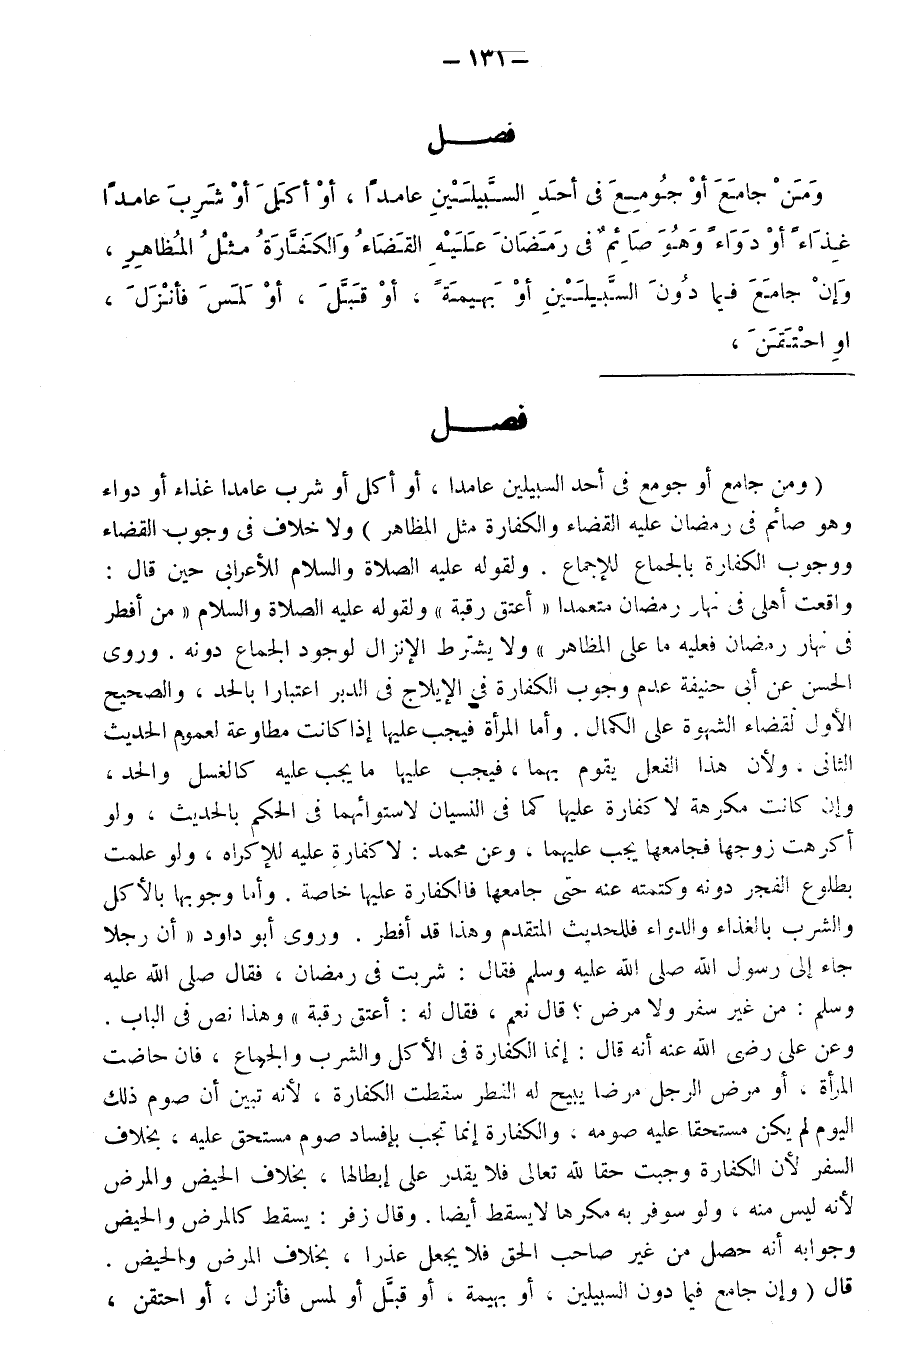 – ١٣١ –
فصــــل
وَمَنْ جامَعَ أوْ جُومِعَ فى أحَدِ السَّبِيلَيْنِ عامدًا ، أوْ أكَلَ أوْ شَرِبَ عامدًا
غِذَاءً أوْ دَوَاءً وَهُوَ صَائمٌ فى رَمَضَانَ عَلَيْهِ القَضَاءُ وَالكَفَّارَةُ مثلُ المُظاهِرِ ،
وَإنْ جامَعَ فيما دُونَ السَّبِيلَيْنِ أوْ بَهِيمَةً ، أوْ قَبَّلَ ، أوْ لمَسَ فأنْزَلَ ،
اوِ احْتَقَنَ ،
فصــــل
( ومن جامع أو جومع فى أحد السبيلين عامدا ، أو أكل أو شرب عامدا غذاء أو دواء
وهو صائم فى رمضان عليه القضاء والكفارة مثل المظاهر ) ولا خلاف فى وجوب القضاء
ووجوب الكفارة بالجماع للإجماع . ولقوله عليه الصلاة والسلام للأعرابى حين قال :
واقعت أهلى فى نهار رمضان متعمدا « أعتق رقبة » ولقوله عليه الصلاة والسلام « من أفطر
فى نهار رمضان فعليه ما على المظاهر » ولا يشترط الإنزال لوجود الجماع دونه . وروى
الحسن عن أبى حنيفة عدم وجوب الكفارة فى الإيلاج فى الدبر اعتبارا بالحد ، والصحيح
الأول لقضاء الشهوة على الكمال . وأما المرأة فيجب عليها إذا كانت مطاوعة لعموم الحديث
الثانى . ولأن هذا الفعل يقوم بهما ، فيجب عليها ما يجب عليه كالغسل والحد ،
وإن كانت مكرهة لا كفارة عليها كما فى النسيان لاستوائهما فى الحكم بالحديث ، ولو
أكرهت زوجها فجامعها يجب عليهما ، وعن محمد : لا كفارة عليه للإكراه ، ولو علمت
بطلوع الفجر دونه وكتمته عنه حتى جامعها فالكفارة عليها خاصة . وأما وجوبها بالأكل
والشرب بالغذاء والدواء فللحديث المتقدم وهذا قد أفطر . وروى أبو داود « أن رجلا
جاء إلى رسول الله صلى الله عليه وسلم فقال : شربت فى رمضان ، فقال صلى الله عليه
وسلم : من غير سفر ولا مرض ؟ قال نعم ، فقال له : أعتق رقبة » وهذا نص فى الباب .
وعن على رضى الله عنه أنه قال : إنما الكفارة فى الأكل والشرب والجماع ، فان حاضت
المرأة ، أو مرض الرجل مرضا يبيح له الفطر سقطت الكفارة ، لأنه تبين أن صوم ذلك
اليوم لم يكن مستحقا عليه صومه ، والكفارة إنما تجب بإفساد صوم مستحق عليه ، بخلاف
السفر لأن الكفارة وجبت حقا لله تعالى فلا يقدر على إبطالها ، بخلاف الحيض والمرض
لأنه ليس منه ، ولو سوفر به مكرها لا يسقط أيضا . وقال زفر : يسقط كالمرض والحيض
وجوابه أنه حصل من غير صاحب الحق فلا يجعل عذرا ، بخلاف المرض والحيض .
قال ( وإن جامع فيما دون السبيلين ، أو بهيمة ، أو قبَّل أو لمس فأنزل ، أو احتقن ،